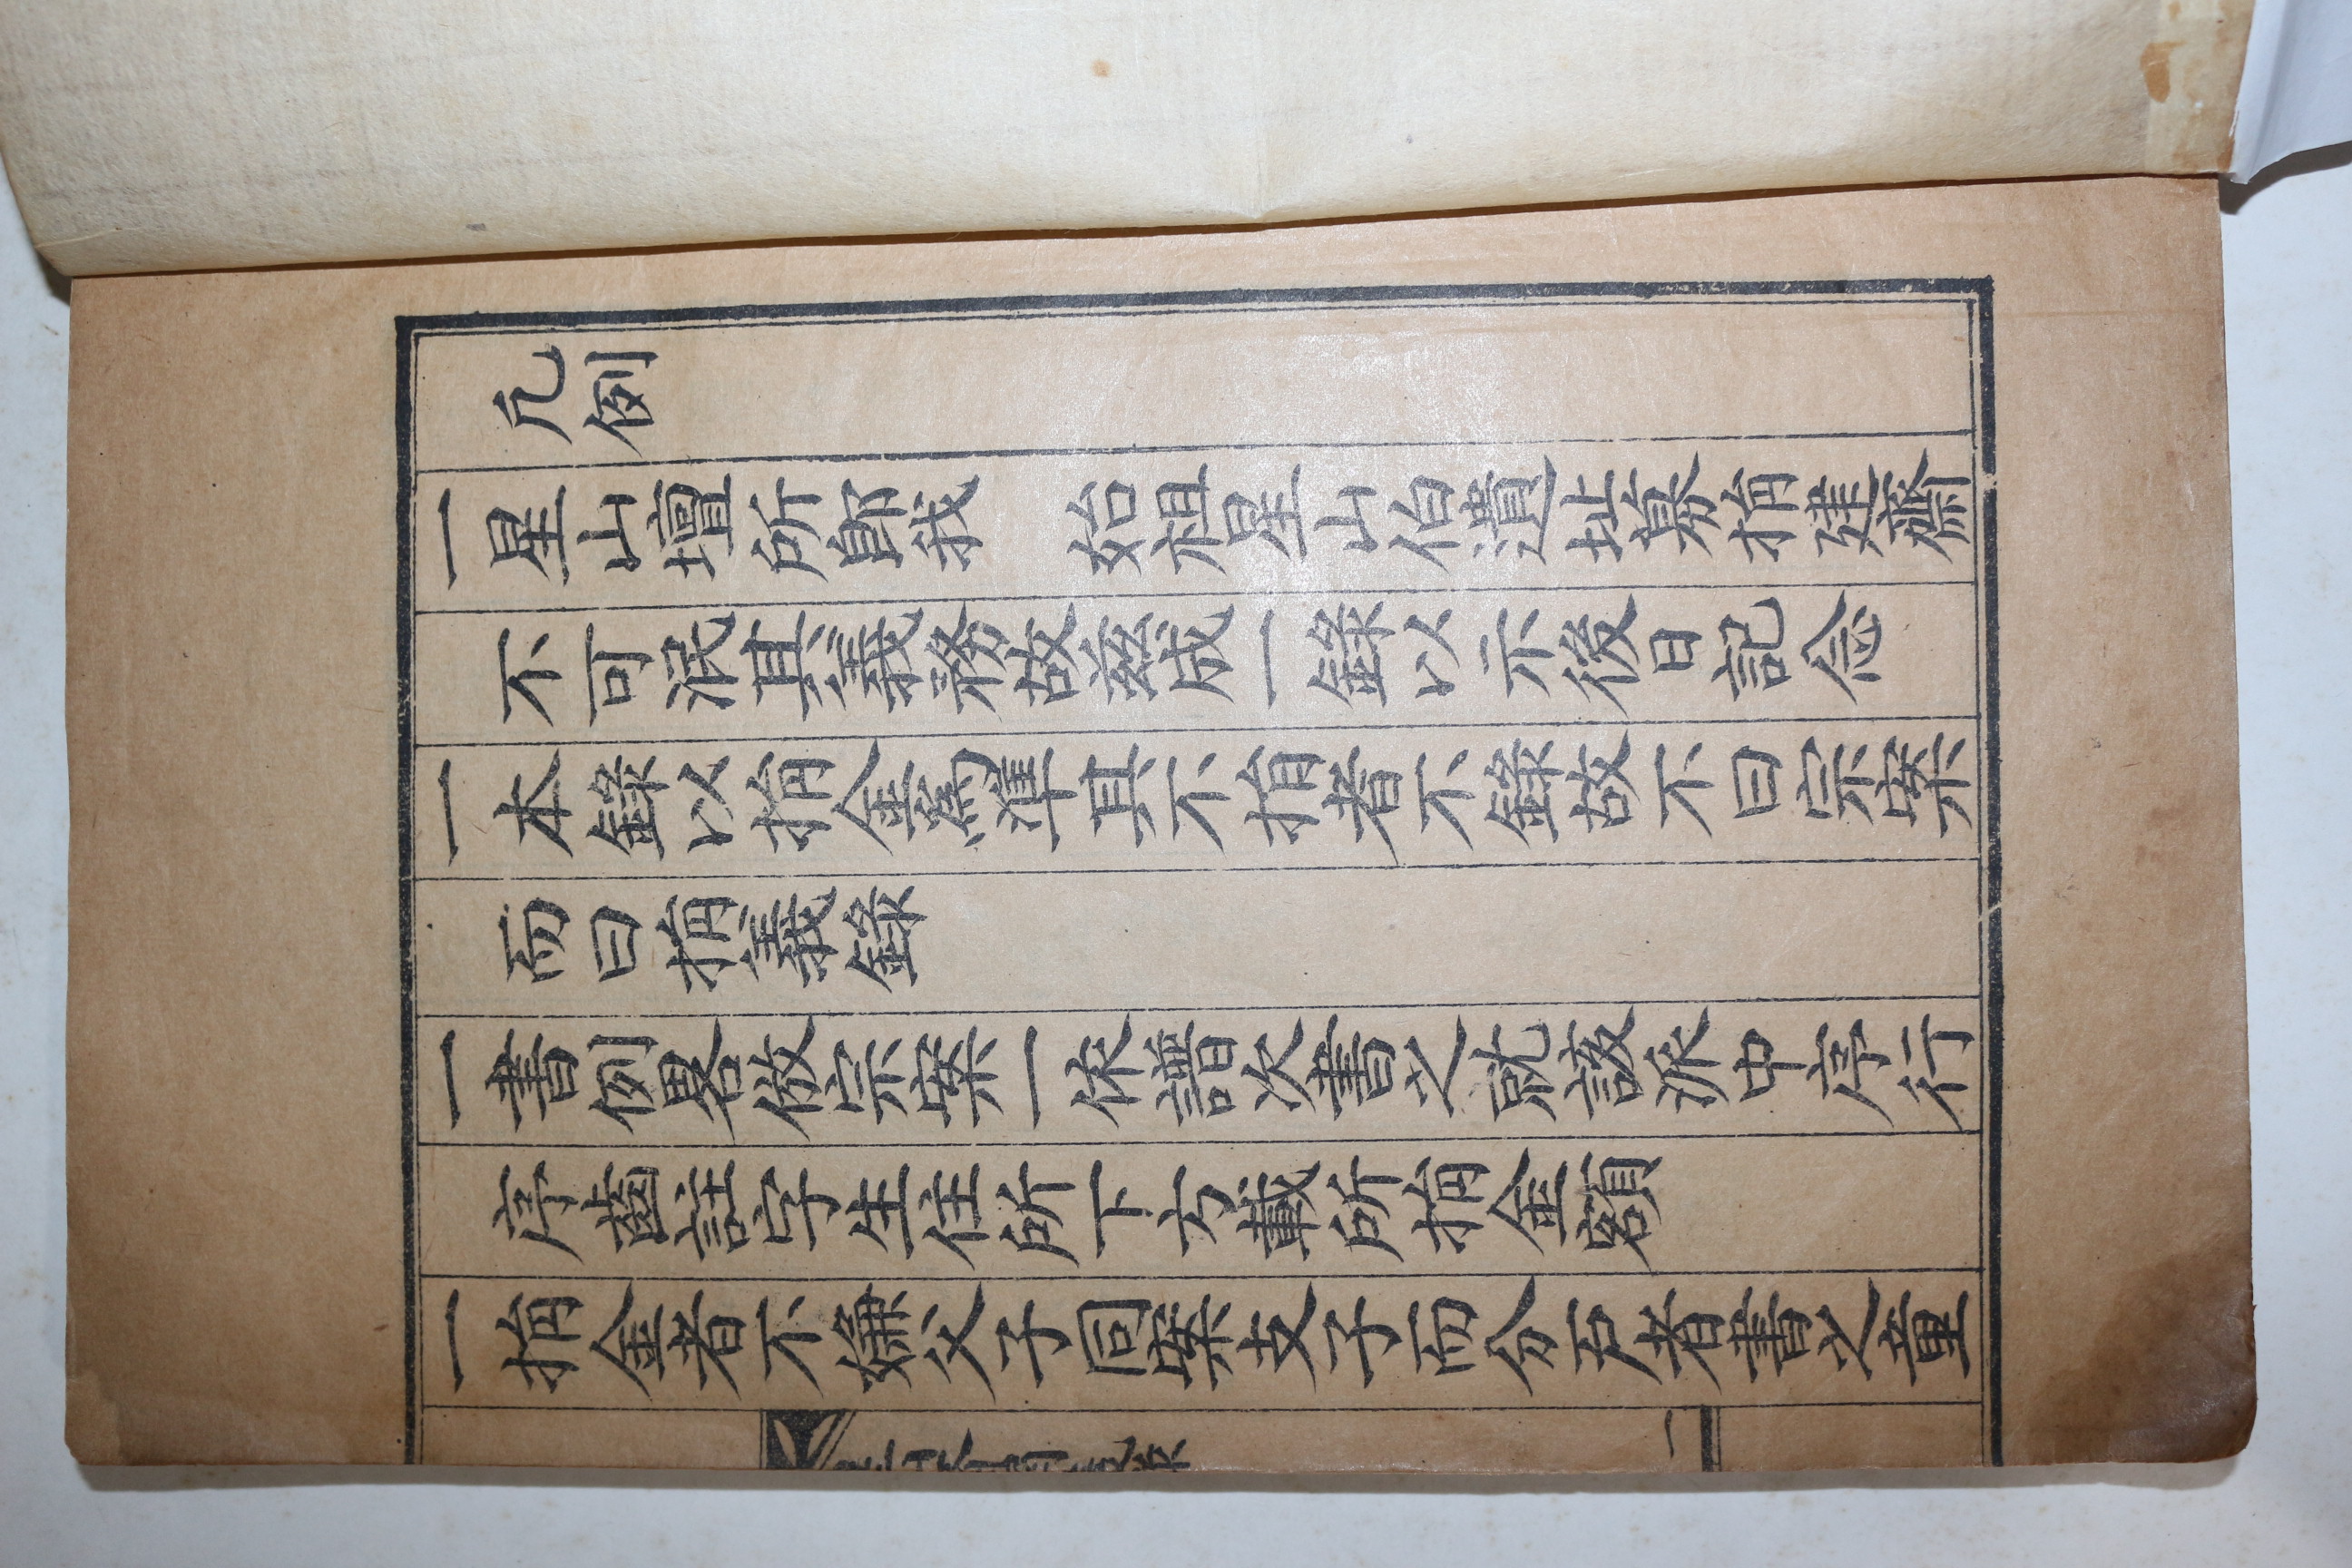 凡例
一星山壇所卽我　始祖星山伯遺址募捐建齋
不可泯其義務故玆成一錄以示後日記念
一本錄以捐金爲準其不捐者不錄故不曰宗案
而曰捐義錄
一書例畧倣宗案一依譜次書之就該派中序行
序齒註字生住所下方載所捐金額
一捐金者不嫌父子同案支子而分戶者書之童
一